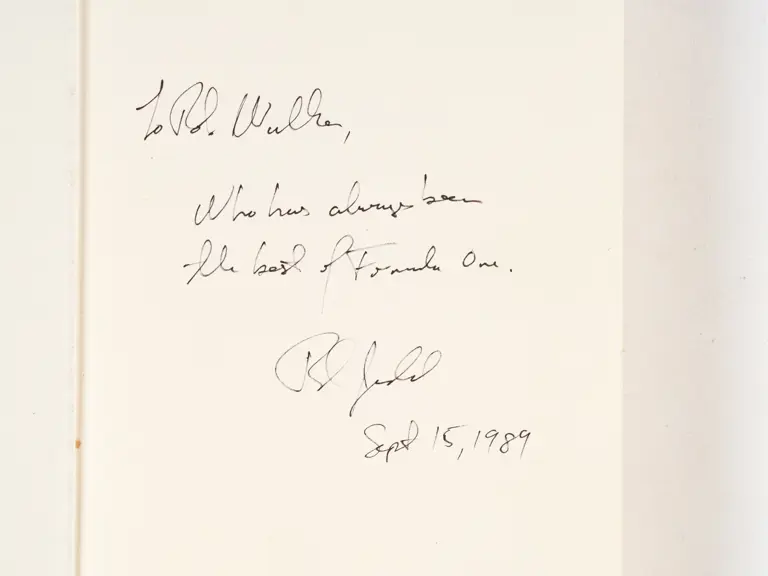 To Rob Walker,
Who has always been
the best of Formula One.
Sept 15, 1989